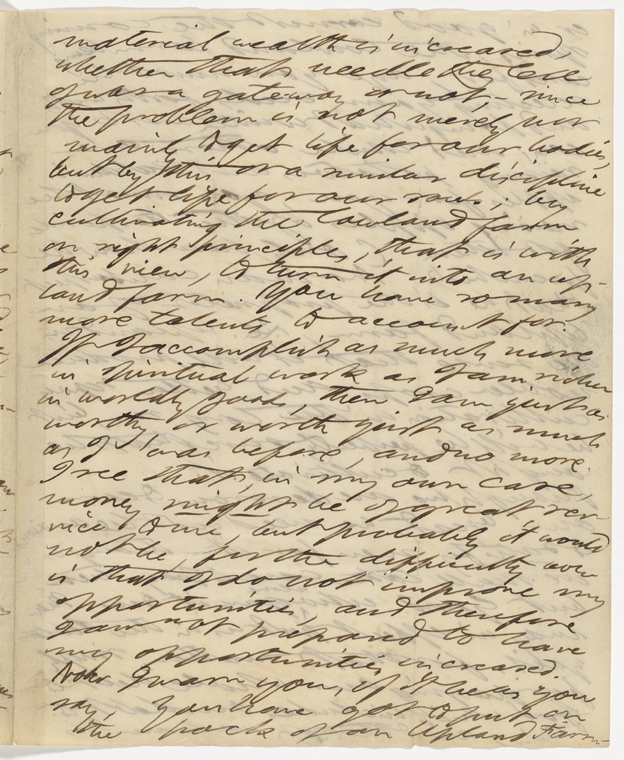 material wealth is increased,
whether that needle's eye be
quasi a gateway or not, since
the problem is not merely nor
mainly to get life for our bodies,
but by this or a similar discipline
to get life for our souls; by
cultivating the lowland farm
on right principles, that is with
this view, to turn it into an up-
land farm. You have so many
more talents to account for.
If I accomplish as much more
in spiritual work as I am richer
in worldly goods, then I am just as
worthy or worth just as much
as I was before, and no more.
I see that, in my own case,
money might be of great ser-
vice to me, but probably it would
not be, for the difficulty now
is that I do not improve my
opportunities, and therefore
I am not prepared to have
my opportunities increased.
Now I warn you, if it be as you
say you have got to put on
the pack of an Upland Farm-